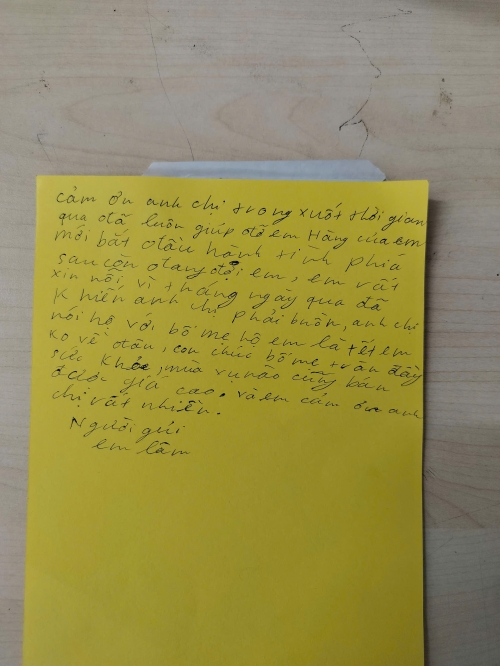 cảm ơn anh chị trong xuốt thời gian
qua đã luôn giúp đỡ em Hàng của em
mới bắt đầu hành tinh phiá
sau còn đang đợi em, em vất
xin nỗi, vì tháng ngày qua đã
Khiến anh chị phải buồn, anh chị
nói hộ với bố mẹ hộ em là tết em
ko về đâu, con chúc bố mẹ tràn đầy
sức khỏe, mùa vụ nào cũng bán
được giá cao. và em cảm ơn anh
chị vất nhiền.
Người gửi
em lâm